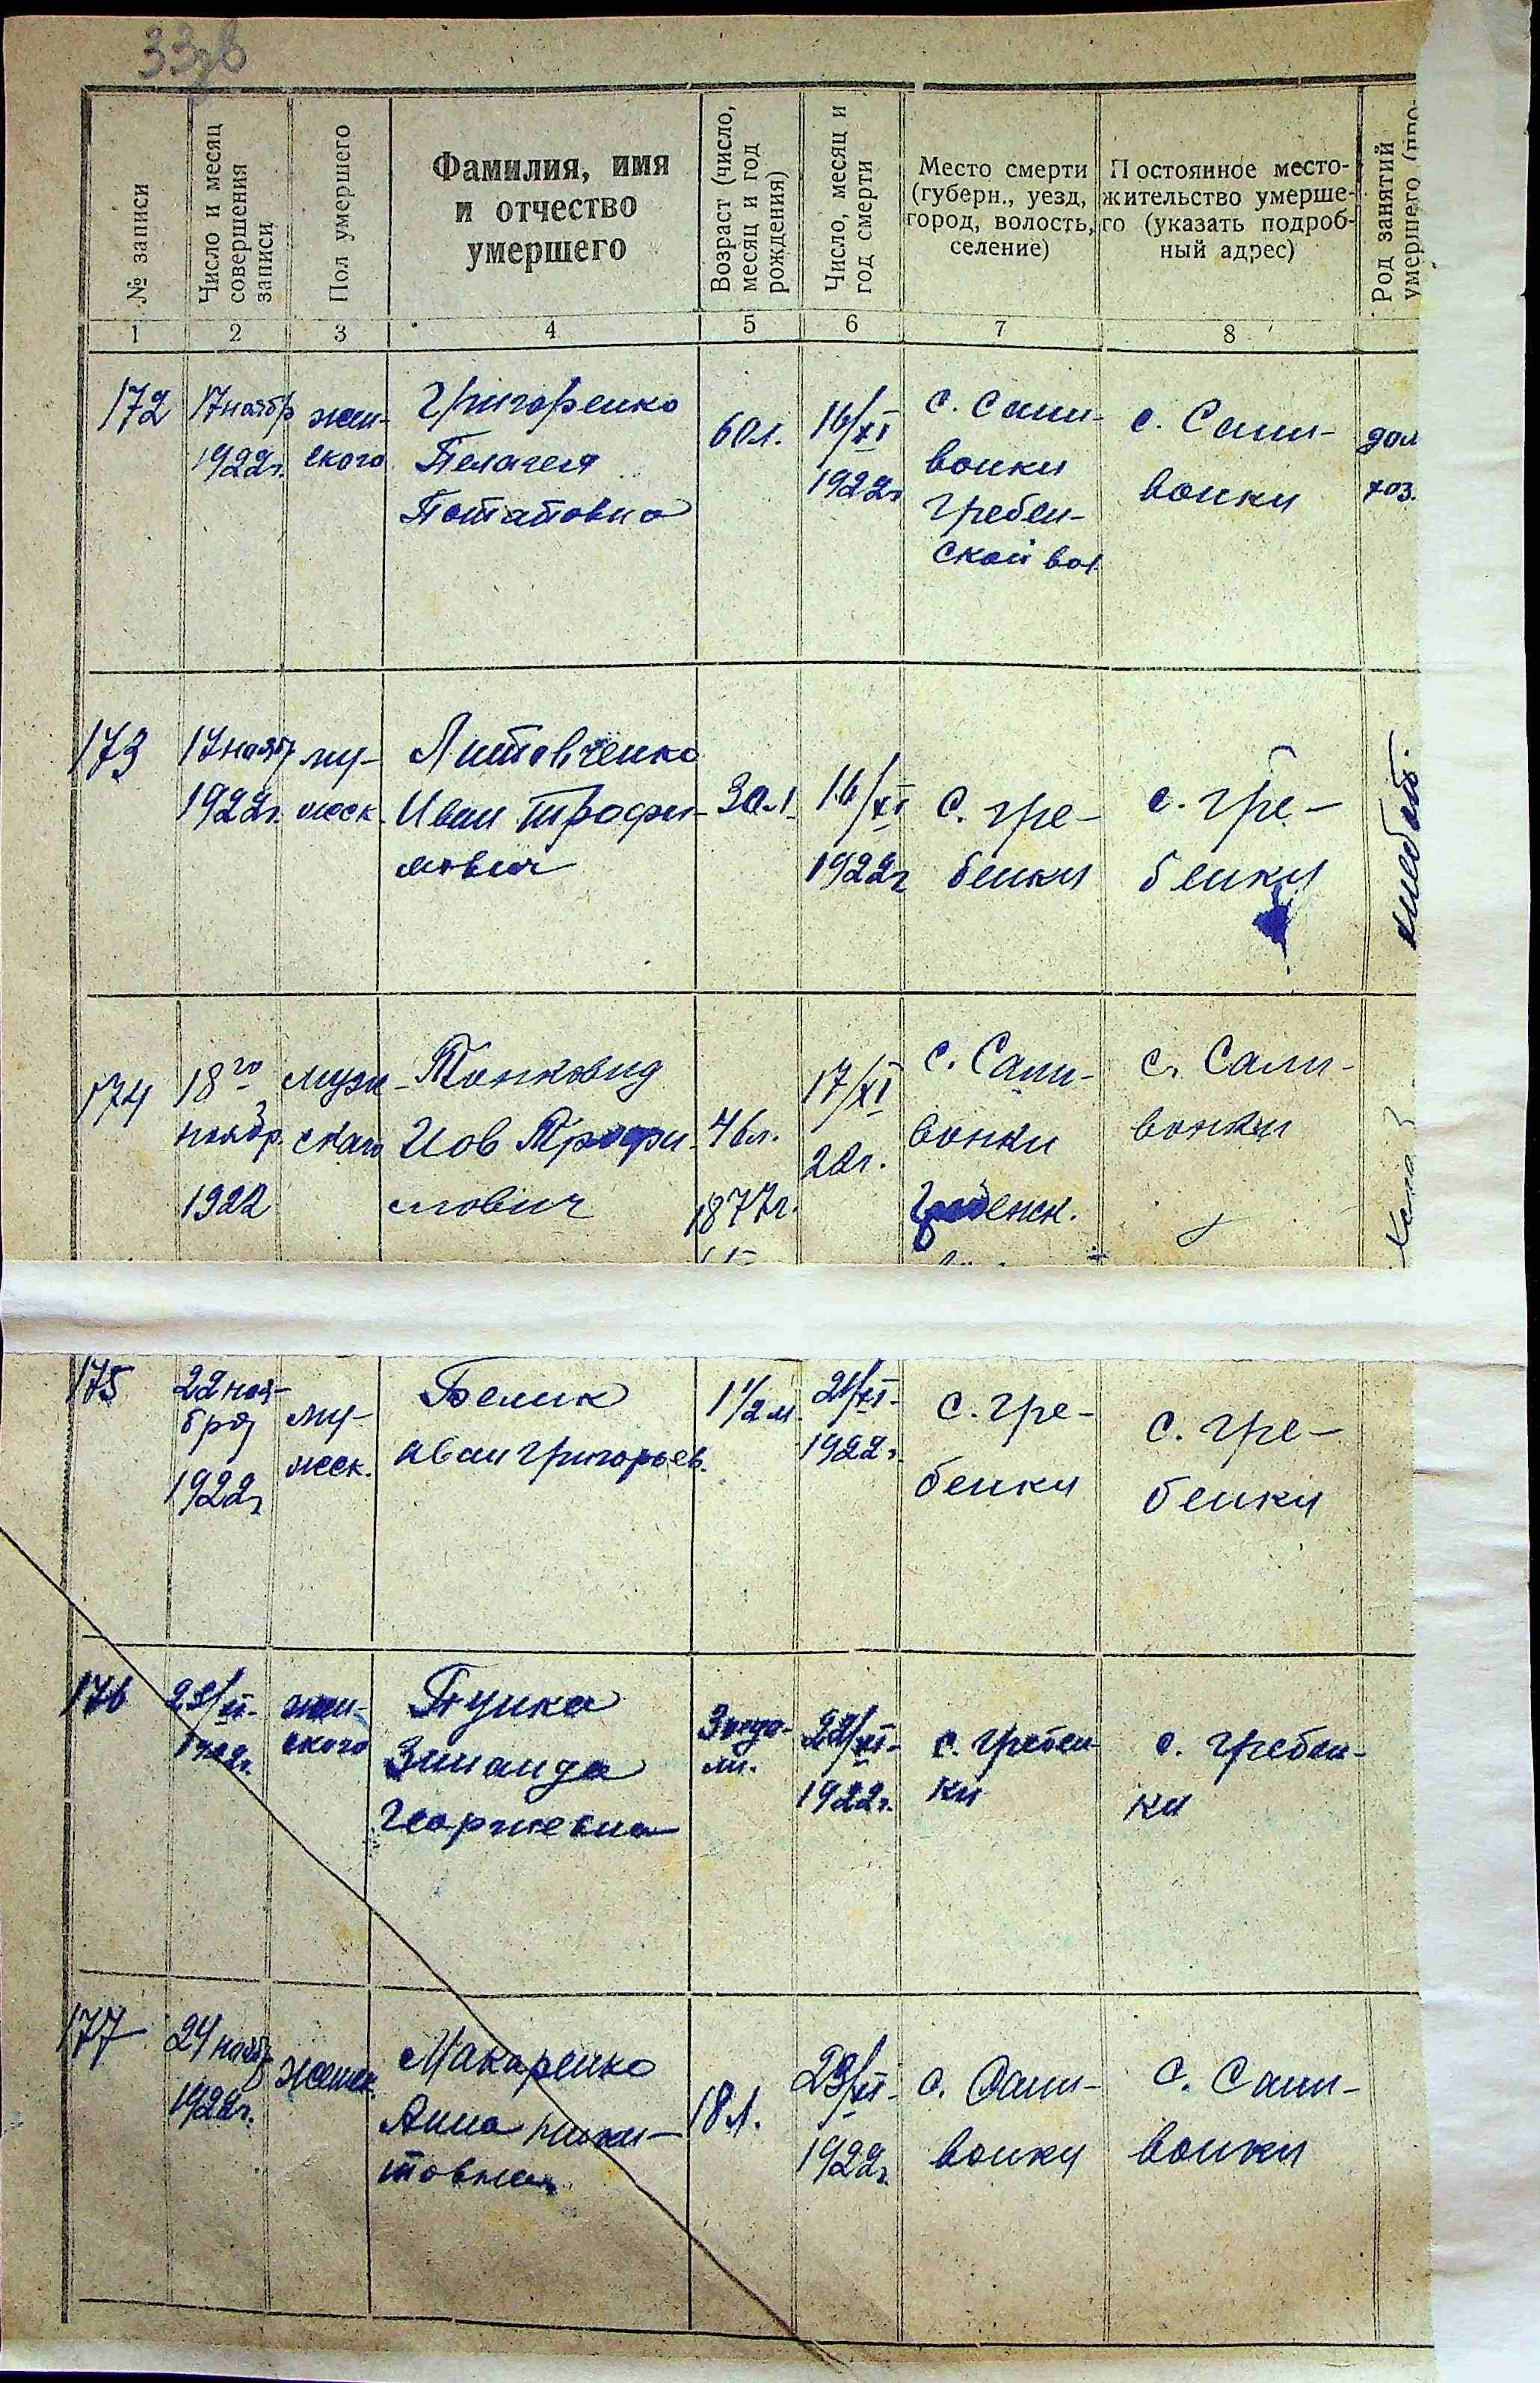 № записи
Число и месяц совершения записи
Пол умершего
Фамилия, имя
и отчество
умершего
Возраст (число, месяц и год рождения)
Число, месяц и год смерти
Место смерти
(губерн., уезд,
город, волость,
селение)
Постоянное место-
жительство умерше-
го (указать подроб-
ный адрес)
Род занятий
умершего
1 2 3 4 5 6 7 8
172
17 ноябр
1922г.
жен-
ского
Григоренко
Пелагея
Потаповна
60 л.
16/XI
1922г
с. Сали-
вонки
Гребен-
ской вол.
с. Сали-
вонки
дом
хоз.
173
17 ноябр
1922г.
му-
жеск.
Литовченко
Иван Трофи-
мович
30 л.
16/XI
1922г
с. Гре-
бенки
с. Гре-
бенки
174
18го
ноябр.
1922
муж-
ского
Тонковид
Иов Трофи-
мович
46 л.
1877г.
17/XI
22г.
с. Сали-
вонки
Гребенк.
с. Сали-
вонки
175
22 ноя-
бря
1922г
му-
жеск.
Белик
Иван Григорьев.
1 1/2 м.
21/XI-
1922г.
с. Гре-
бенки
с. Гре-
бенки
176
23/XI-
1922г.
жен-
ского
Пунка
Зинаида
Георгиевна
3 недо-
22/XI-
1922г.
с. Гребен-
ки
с. Гребен-
ки
177
24 ноябр
1922г.
женск.
Макаренко
Анна Ники-
товна
18 л.
23/XI-
1922г.
с. Сали-
вонки
с. Сали-
вонки